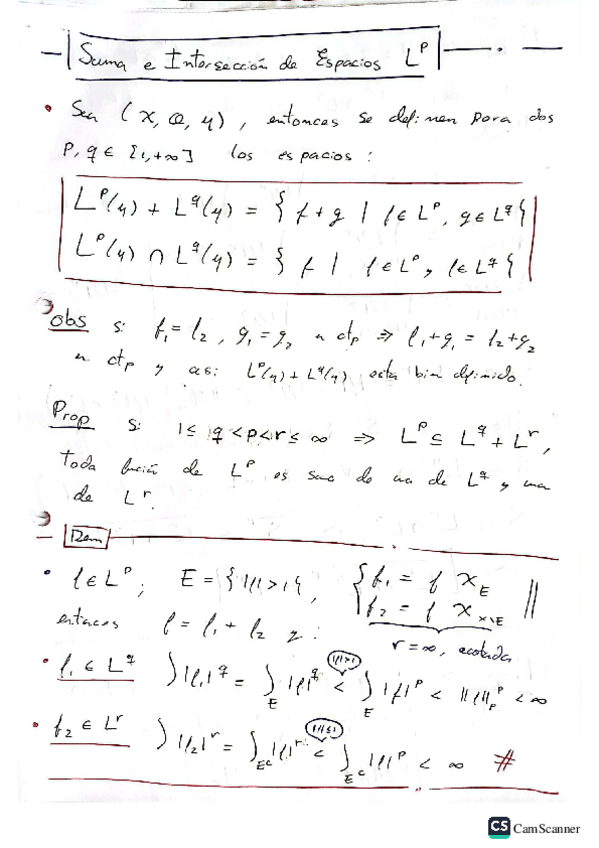 Suma e Intersección de Espacios L^p
• Sea (X, Q, μ), entonces se definen para dos
p, q ∈ [1, +∞] los espacios:
L^p(μ) + L^q(μ) = { f + g | f ∈ L^p, g ∈ L^q }
L^p(μ) ∩ L^q(μ) = { f | f ∈ L^p y f ∈ L^q }
obs si f₁ = f₂, g₁ = g₂ μ ctp ⇒ f₁ + g₁ = f₂ + g₂
μ ctp y así L^p(μ) + L^q(μ) esta bien definido.
Prop si 1 ≤ q < p < r ≤ ∞ ⇒ L^p ⊆ L^q + L^r,
toda función de L^p es suma de una de L^q y una
de L^r.
Dem
• f ∈ L^p; E = { |f| > 1 }, { f₁ = f χ_E
f₂ = f χ_{X\E} ||
entonces f = f₁ + f₂ y:
r = ∞, acotada
• f₁ ∈ L^q ∫|f₁|^q = ∫_E |f|^q < ∫_E |f|^p < ||f||_p^p < ∞
|f|>1
• f₂ ∈ L^r ∫|f₂|^r = ∫_{E^c} |f|^r < ∫_{E^c} |f|^p < ∞ #
|f|≤1
CS CamScanner